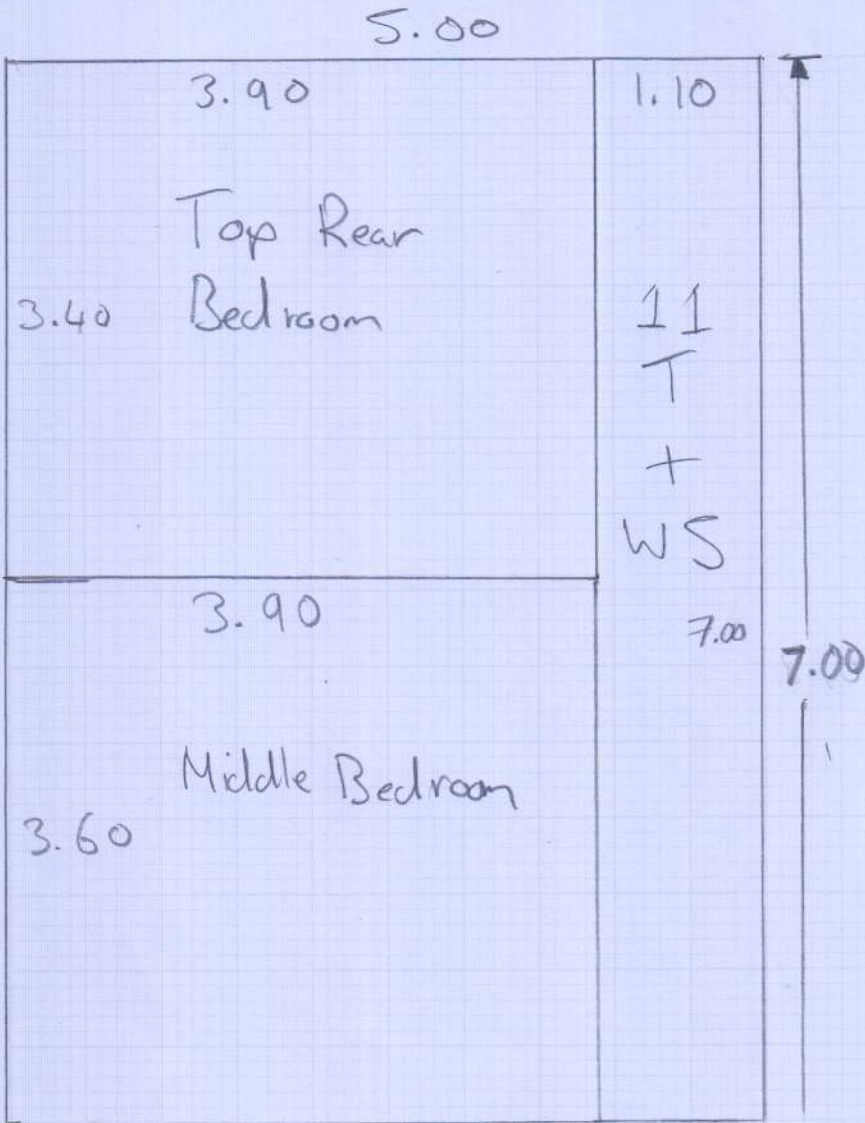 5.00
3.90
1.10
Top Rear
Bedroom
3.40
11
T
+
WS
3.90
7.00
7.00
Middle Bedroom
3.60